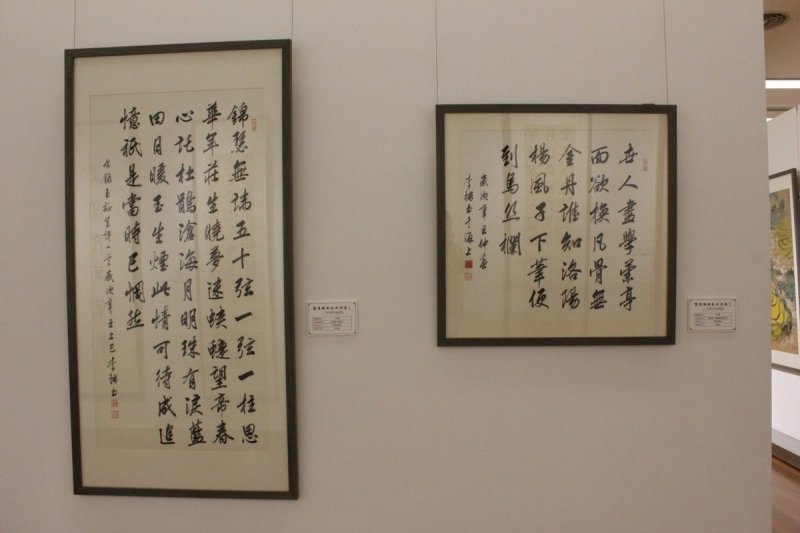 錦瑟無端五十弦一弦一柱思
華年莊生曉夢迷蝴蝶望帝春
心託杜鵑滄海月明珠有淚藍
田日暖玉生煙此情可待成追
憶祇是當時已惘然
右錄玉谿生詩一首歲次辛丑上巳李書
世人盡學蘭亭
面欲換凡骨無
金丹誰知洛陽
楊風子下筆便
到烏絲欄
歲次辛丑仲春
李書于海上